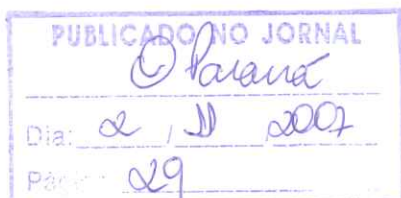 PUBLICADO NO JORNAL
O Paraná
Dia: 2 / 11 / 2007
Página: 29